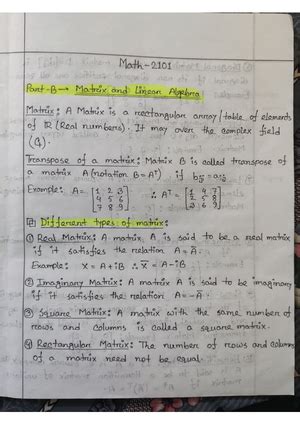 Math-2101
Part-B→ Matrix and Linear Algebra
Matrix: A Matrix is a rectangular array/table of elements
of ℝ (Real numbers). It may over the complex field
Transpose of a matrix: Matrix B is called transpose of
a matrix A (notation B=Aᵗ) if bij = aji
Example: A= [1 2 3 ∴ Aᵗ = [1 4 7
4 5 6 2 5 8
7 8 9] 3 6 9]
Different types of matrix:
① Real Matrix: A matrix A is said to be a real matrix
if it satisfies the relation A = Ā.
Example: X = A+iB ∴ X̄ = A-iB
② Imaginary Matrix: A matrix A is said to be imaginary
if it satisfies the relation A = -Ā.
③ Square Matrix: A matrix with the same number of
rows and columns is called a square matrix.
④ Rectangular Matrix: The number of rows and columns
of a matrix need not be equal.